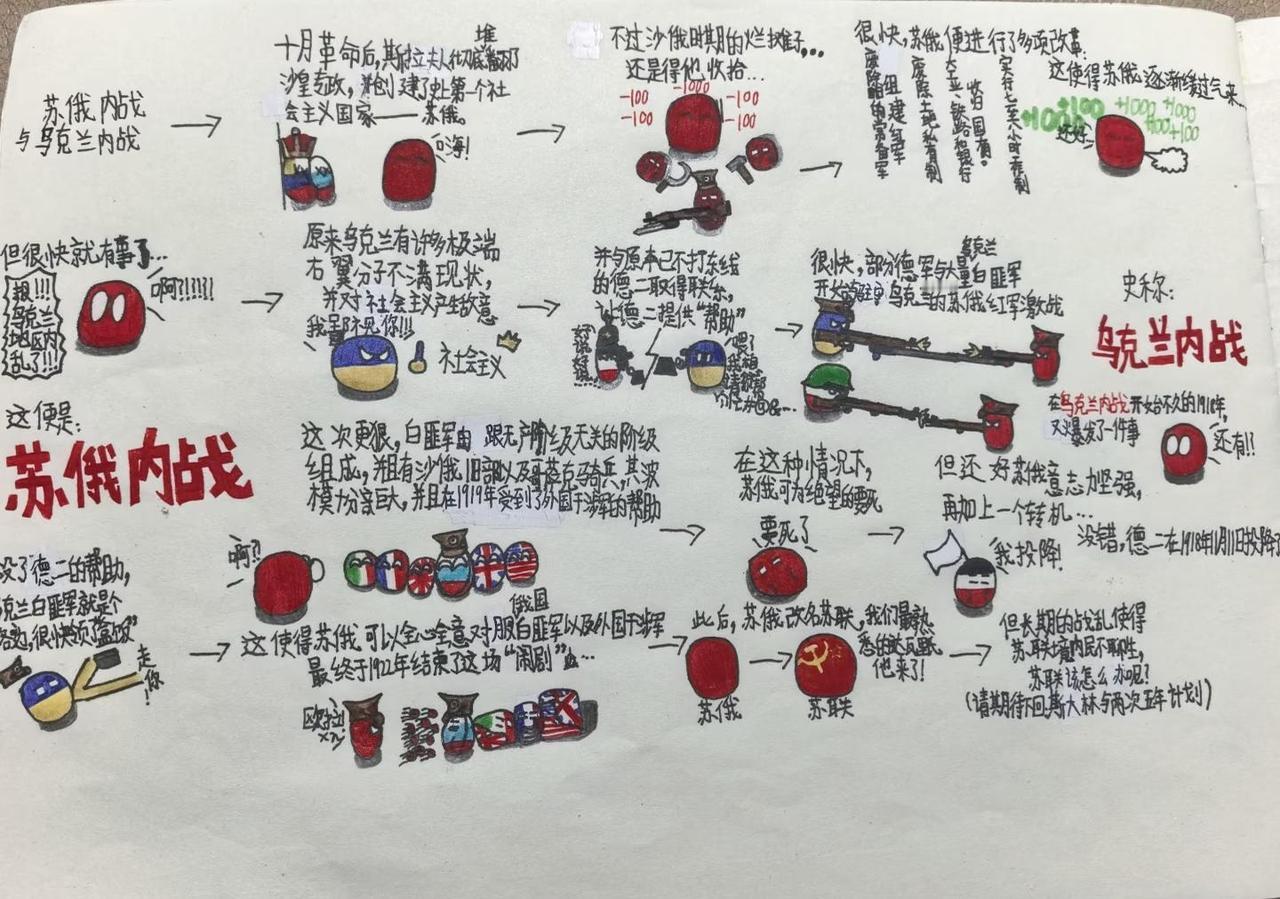 苏俄内战
与乌克兰内战
十月革命后,斯拉夫人彻底推翻
沙皇专政,并创建了史上第一个社
会主义国家——苏俄。
嗨!
不过沙俄时期的烂摊子,...
还是得他收拾...
-100
-1000
-100
-100
-100
很快,苏俄便进行了多项改革:
废除旧的常备军
组建红军
废除土地私有制
大工业、铁路和银行
收归国有。
实行七至八小时工作制
这使得苏俄逐渐缓过气来...
+1000
+100
+1000
+1000
还好
但很快就有事了...
报!!!
乌克兰
地区内
乱了!!!
啊?!!!!!
原来乌克兰有许多极端
右翼分子不满现状,
并对社会主义产生敌意
社会主义
并与原本已不打东线
的德二取得联系,
让德二提供“帮助”
很快,部分德军与大量乌克兰白匪军
开始与驻守乌克兰的苏俄红军激战
史称:
乌克兰内战
在乌克兰内战开始不久的1918年,
又爆发了一件事
还有!!
这便是:
苏俄内战
这次更狠,白匪军由跟无产阶级无关的阶级
组成,并且有沙俄旧部以及哥萨克马奇兵,其波
模十分容巨大,并且在1919年受到了外国干涉军的帮助
啊?!
在这种情况下,
苏俄可为绝望的要死
要死了
但还好苏俄意志力坚强,
再加上一个转机...
我投降!
没错,德二在1918年11月11日投降了
没了德二的帮助,
克兰白匪军就是个
很快领“盒饭”
走你!
这使得苏俄可以全心全意对服俄国白匪军以及外国干涉军
最终于1922年结束了这场“闹剧”...
欧拉!
×2
此后,苏俄改名苏联,我们最熟
悉的达瓦里氏
他来了!
苏俄
苏联
但长期的战乱使得
苏联境内民不聊生,
苏联该怎么办呢?
(请期待下回斯大林与两次五年计划)